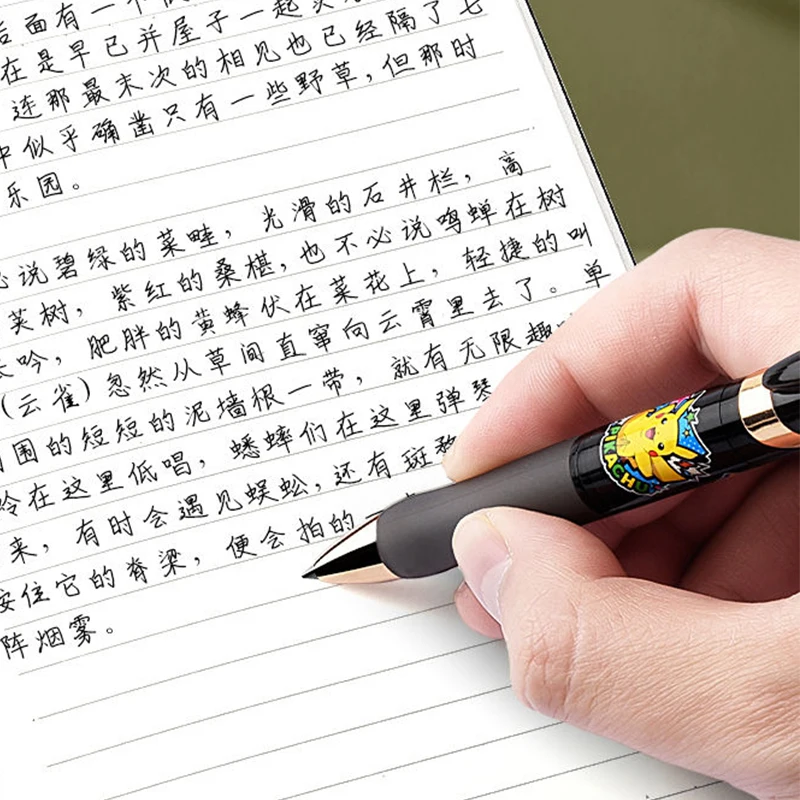 后面有一个
在是早已并屋子一起
连那最末次的相见也已经隔了七
中似乎确凿只有一些野草,但那时
乐园。
必说碧绿的菜畦,光滑的石井栏,高
芙树,紫红的桑椹,也不必说鸣蝉在树
长吟,肥胖的黄蜂伏在菜花上,轻捷的叫
(云雀)忽然从草间直窜向云霄里去了。单
周围的短短的泥墙根一带,就有无限趣
蛉在这里低唱,蟋蟀们在这里弹琴
来,有时会遇见蜈蚣,还有斑
按住它的脊梁,便会拍的一
阵烟雾。
PIKACHU